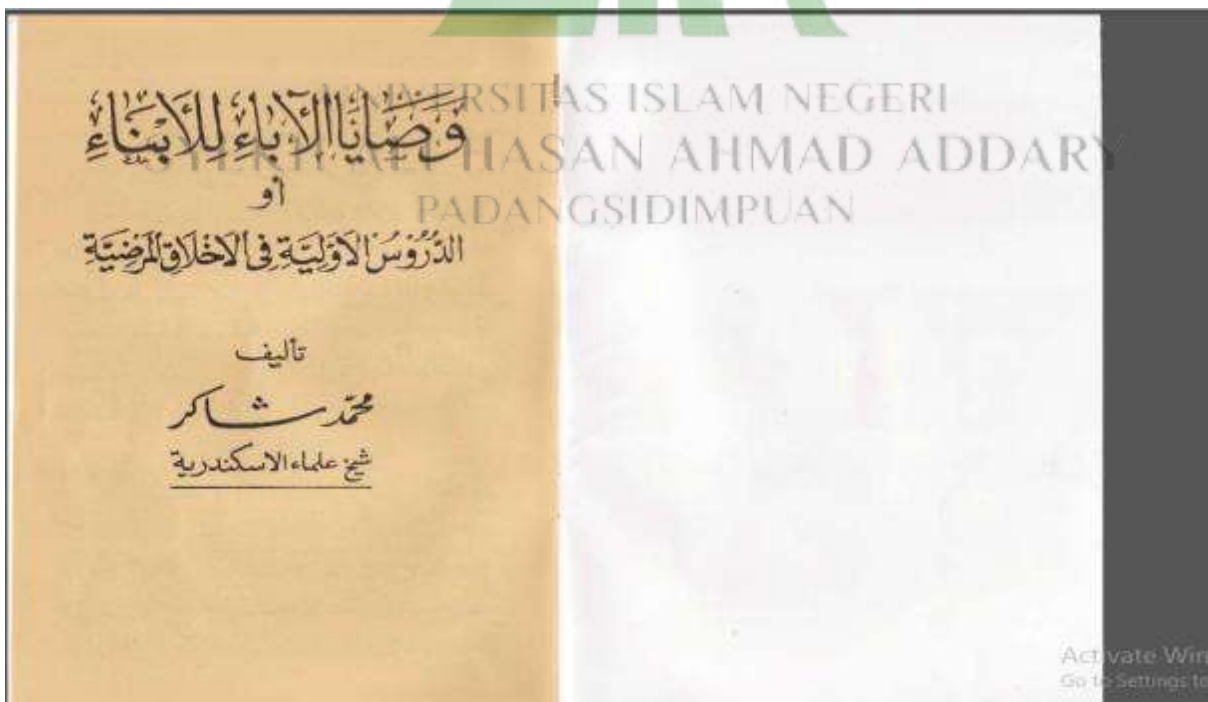 وَصَايَا الْآبَاءِ لِلْأَبْنَاءِ
أو
الدُّرُوْسُ الْاَوَّلِيَّةِ فِى الْاَخْلَاقِ الْمَرْضِيَّةِ
تأليف
محمّد شاكر
شيخ علماء الاسكندرية
UNIVERSITAS ISLAM NEGERI
SYEKH ALI HASAN AHMAD ADDARY
PADANGSIDIMPUAN
Activate Win
Go to Settings to